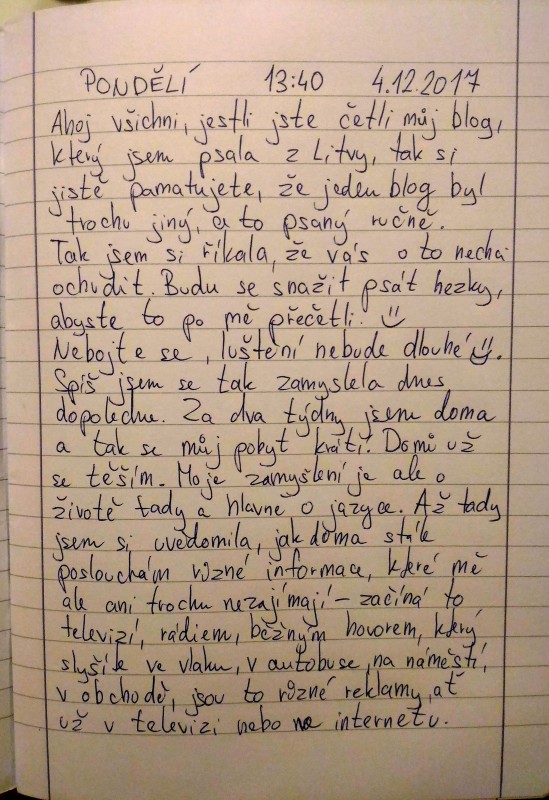 PONDĚLÍ 13:40 4.12.2017
Ahoj všichni, jestli jste četli můj blog,
který jsem psala z Litvy, tak si
jistě pamatujete, že jeden blog byl
trochu jiný, a to psaný ručně.
Tak jsem si říkala, že vás o to nechci
ochudit. Budu se snažit psát hezky,
abyste to po mě přečetli. :)
Nebojte se, luštění nebude dlouhé :).
Spíš jsem se tak zamyslela dnes
dopoledne. Za dva týdny jsem doma
a tak se můj pobyt krátí. Domů už
se těším. Moje zamyšlení je ale o
životě tady a hlavně o jazyce. Až tady
jsem si uvědomila, jak doma stále
poslouchám různé informace, které mě
ale ani trochu nezajímají – začíná to
televizí, rádiem, běžným hovorem, který
slyšíte ve vlaku, v autobuse, na náměstí,
v obchodě, jsou to různé reklamy, ať
už v televizi nebo na internetu.